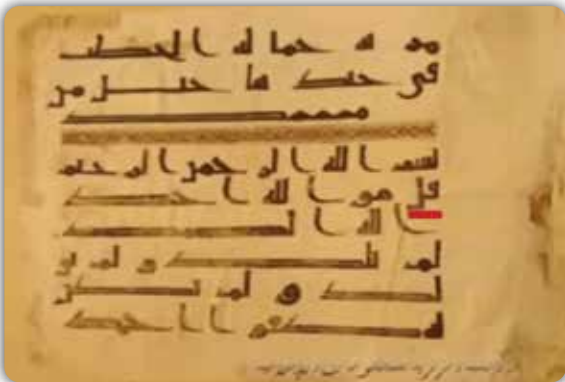 مرته حماله الحطب
في جيدها حبل من
مسد
بسم الله الرحمن الرحيم
قل هو الله احد
الله الصمد
لم يلد و لم يو
لد و لم يكن
له كفوا احد